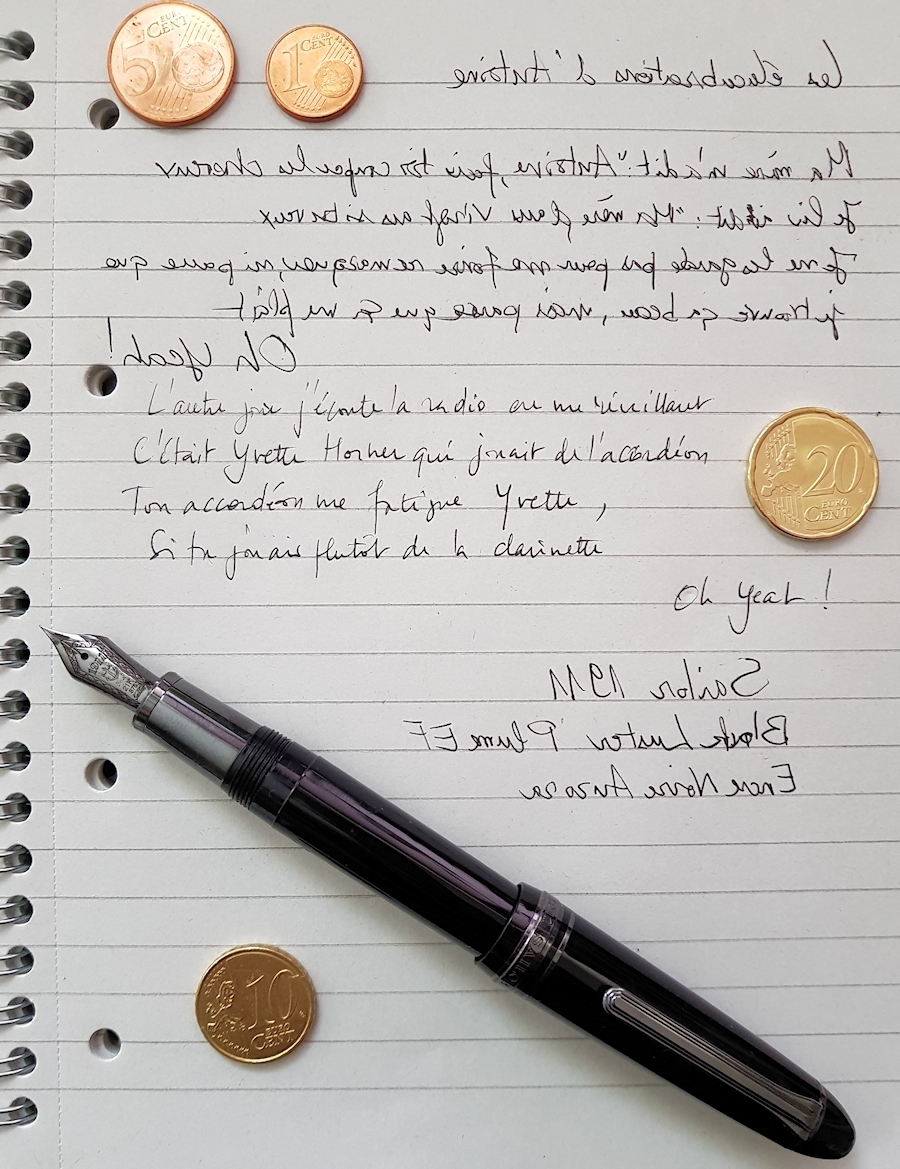 5 EURO CENT
1 EURO CENT
Les élucubrations d'Antoine
Ma mère m'a dit : "Antoine, fais toi couper les cheveux
Je lui ai dit : "Ma mère dans vingt ans si tu veux
Je ne les garde pas pour me faire remarquer, ni parce que
je trouve ça beau, mais parce que ça me plaît
Oh Yeah!
L'autre jour j'écoute la radio en me réveillant
C'était Yvette Horner qui jouait de l'accordéon
20 EURO CENT
Ton accordéon me fatigue Yvette,
Si tu jouais plutôt de la clarinette
Oh Yeah !
Sailor 1911
Black Luster Plume EF
Encre Noire Aurora
10 EURO CENT